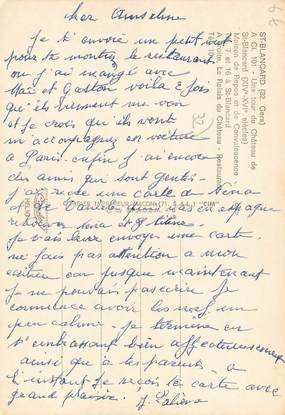 cher Anselme
Je t'envoie un petit mot
pour te montrer le restaurant
ou j'ai mangé avec
et Gaston voila 2 fois
qu'ils viennent me voir
et je crois qu'ils vont
m'accompagner en voiture
a Paris enfin j'ai encore
des amis qui sont gentils
j'ai reçu une carte de
et Claude en espagne
avec et
Je vais leur envoyer une carte
ne fais pas attention a mon
ecriture car jusque maintenant
je ne pouvais pas ecrire je
commence avoir les nerfs un
peu calmes. je termine en
t'embrassant bien affectueusement
ainsi que a tes parents. a
l'instant je reçois ta carte avec
grand plaisir. Y.
ST-BLANCARD (32. Gers)
A CI. 101 - Une tour du Château de
St-Blancard (XIVe-XVIe siècles)
Maison de Repos et de Convalescence
Tél. 7 et 16 à St-Blancard
A droite, Le Relais du Château - Restaurant
Tél. 10
COMBIER IMPRIMEUR MACON (71. S.-&-L.) "CIM"